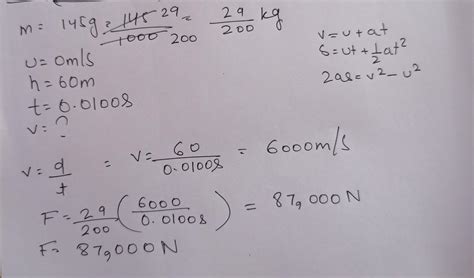 m = 145g = 145/1000 29/200 = 29/200 kg
v = u + at
u = 0m/s
S = ut + 1/2 at²
h = 60m
2as = v² - u²
t = 0.0100s
v = ?
v = d/t = v = 60/0.0100s = 6000m/s
F = 29/200 (6000/0.0100s) = 87,000N
F = 87,000N